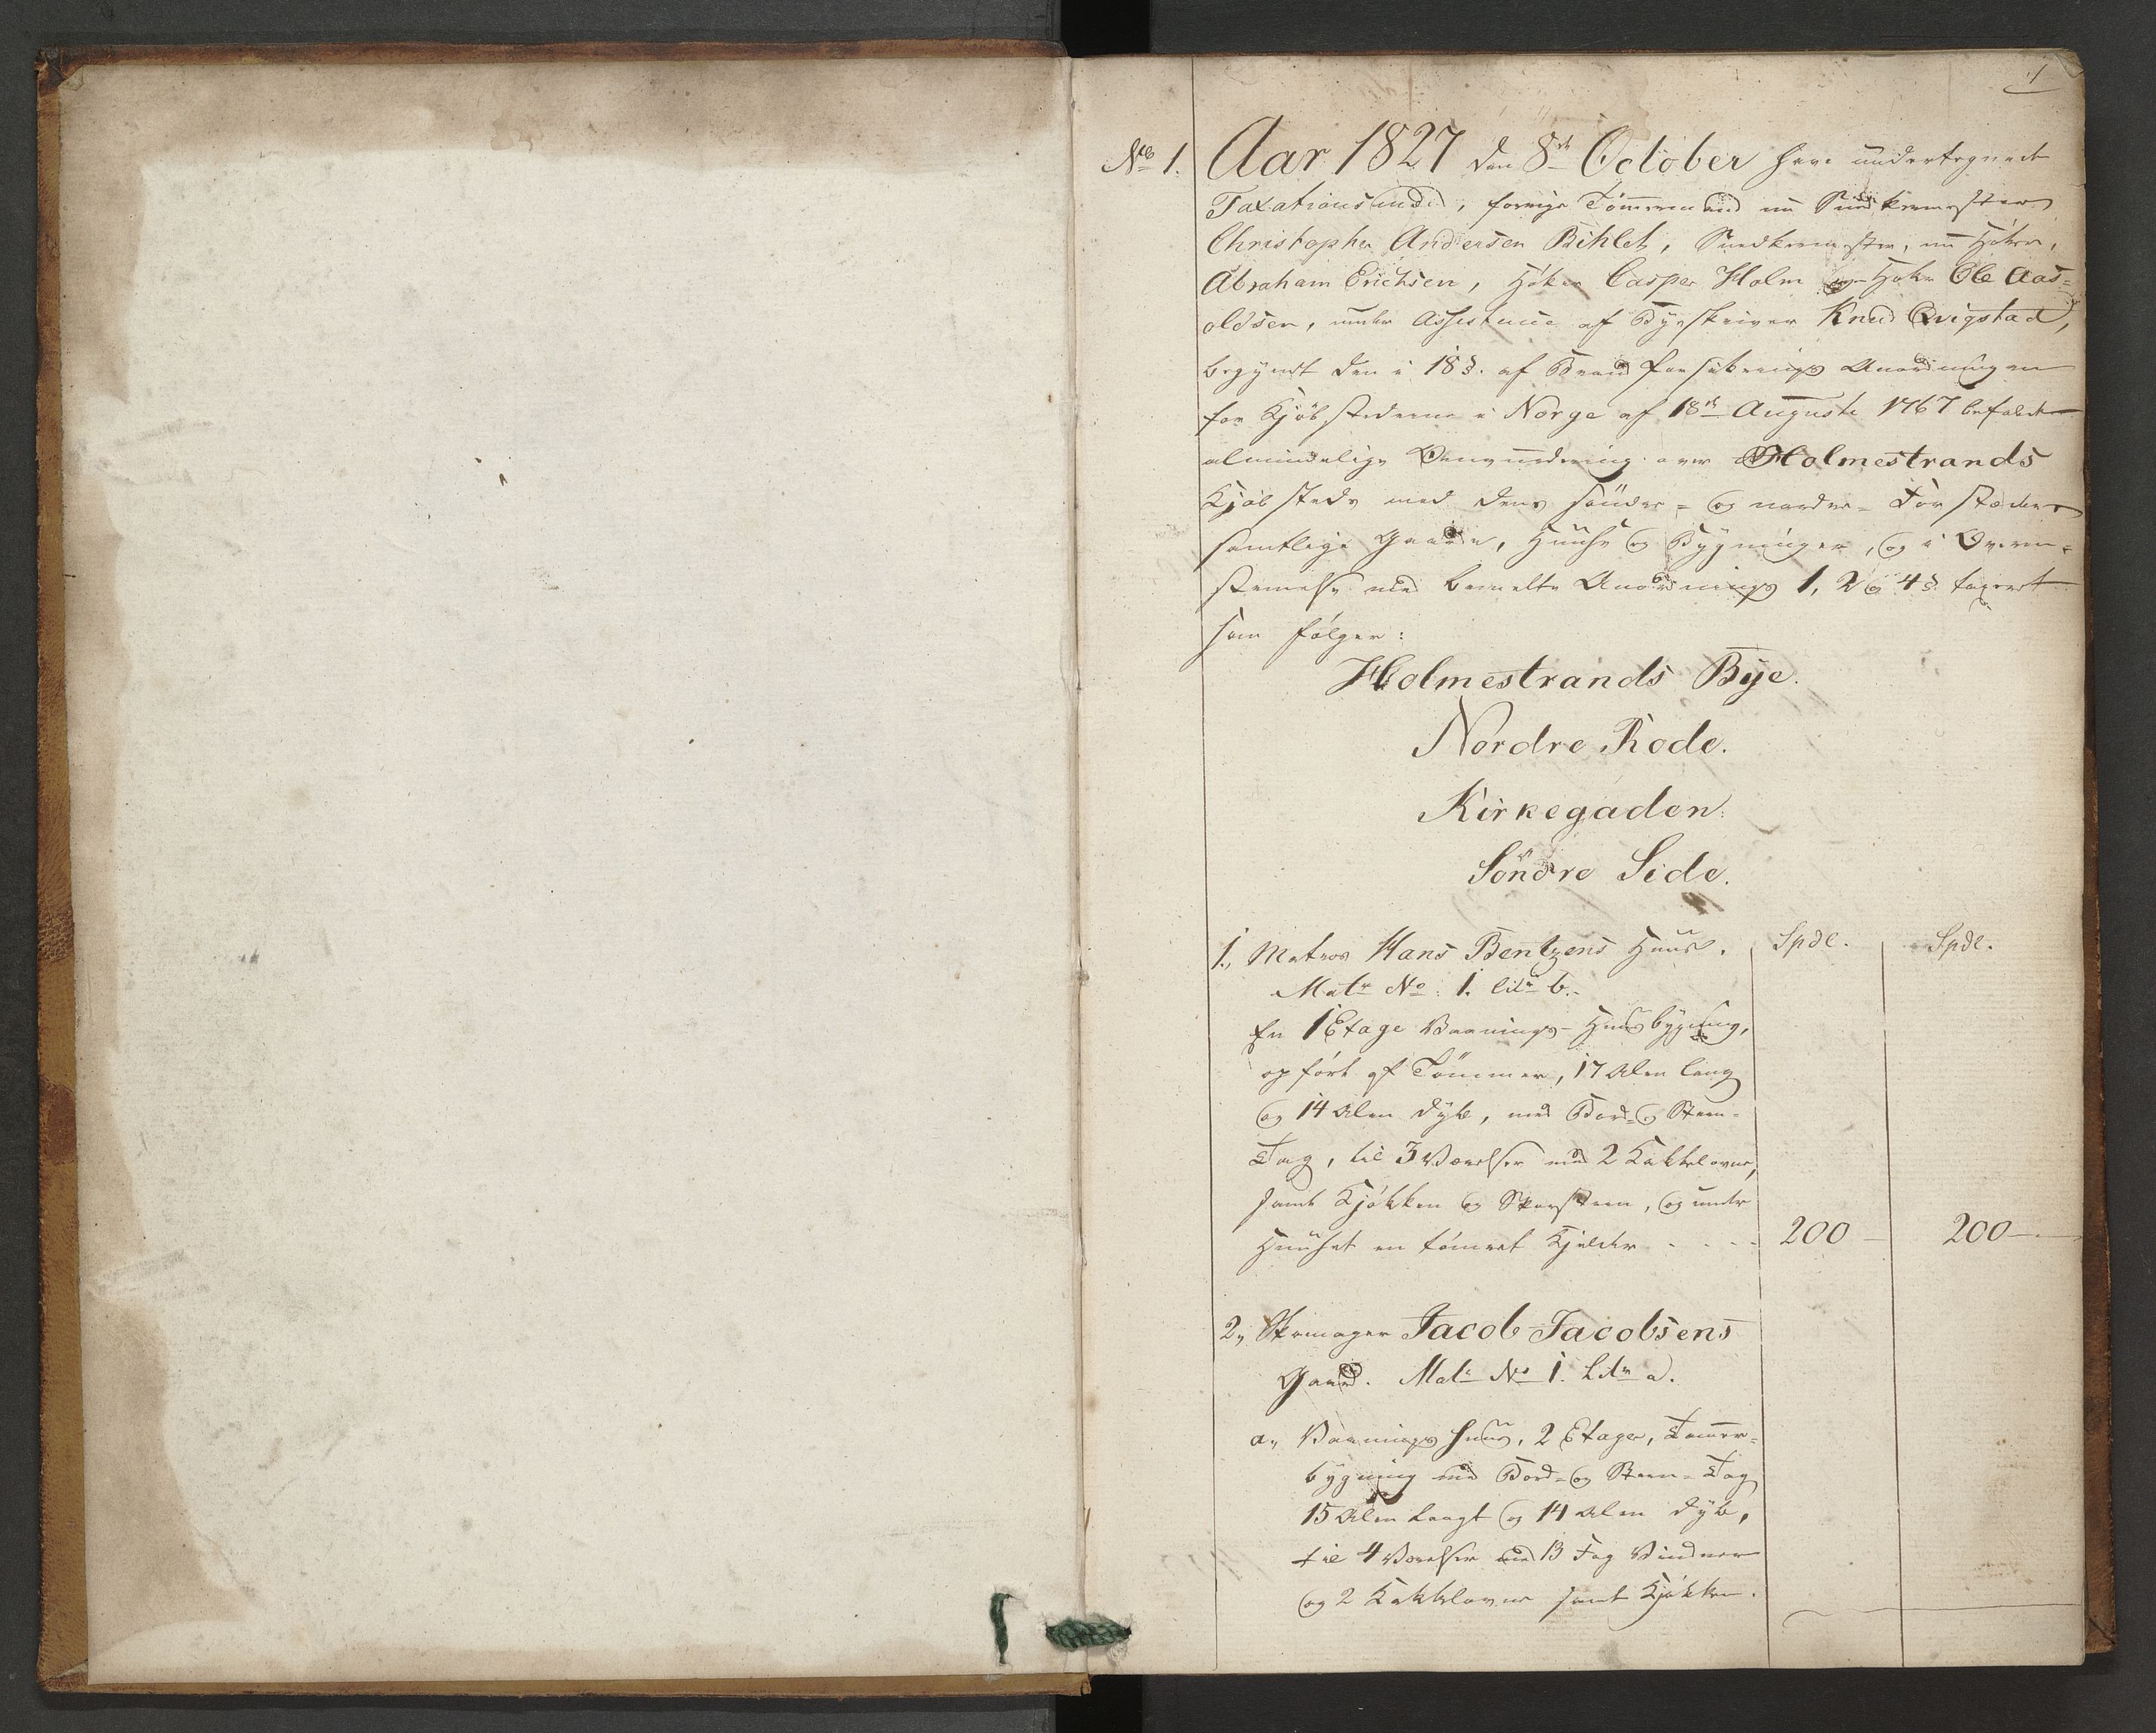 1
No 1. Aar 1827 den 8de October have undertegnede
Taxationsmænd, forrige Tømmermand nu Snedkermester
Christopher Andersen Bihlet, Snedkermester, nu Høker,
Abraham Erichsen, Høker Casper Holm og Høker Ole Aas=
oldsen, under Assistence af Byeskriver Knud Qvigstad,
begyndt den i 18 §. af Brandforsikrings Anordningen
for Kjøbstederne i Norge af 18de Augusti 1767 befalede
almindelige Omvurdering over Holmestrands
Kjøbsteds med dens søndre= og nordre= Forstæders
samtlige Gaarde, Huuse og Bygninger, og i Overeens=
stemmelse med bemelte Anordnings 1, 2 og 4 §. taxeret
som følger:
Holmestrands Bye.
Nordre Rode.
Kirkegaden.
Söndre Side.
1., Matros Hans Bentzens Huus. Spdl. Spdl.
Matr No. 1. litr b.
En 1 Etage Vaanings-Huusbygning,
opført af Tømmer, 17 Alen lang
og 14 Alen dyb, med Bord= og Steen=
Tag, til 3 Værelser med 2 Kakkelovne,
samt Kjøkken og Skorsteen, og under
Huuset en tømret Kjelder - - - - 200 — 200 —
2., Skomager Jacob Jacobsens
Gaard. Matr No 1. Litr a.
a., Vaaningshuus, 2 Etager, Tømmer=
bygning med Bord= og Steen= Tag
15 Alen langt og 14 Alen dyb,
til 4 Værelser med 13 Fag Vinduer
og 2 Kakkelovne samt Kjøkken.